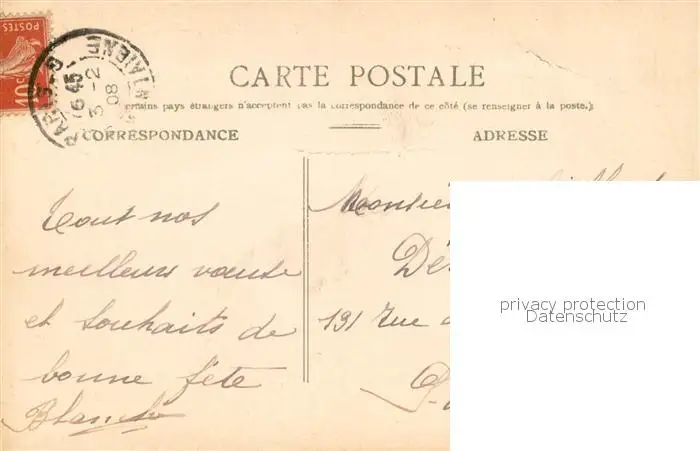 POSTES
10c
PARIS-8
16 45
3-2
08
CARTE POSTALE
certains pays étrangers n'acceptent pas la correspondance de ce côté (se renseigner à la poste.)
CORRESPONDANCE
ADRESSE
Tout nos
meilleurs voeuse
et souhaits de
bonne fête
Blanche
Monsieur
Dés
131 Rue
privacy protection
Datenschutz